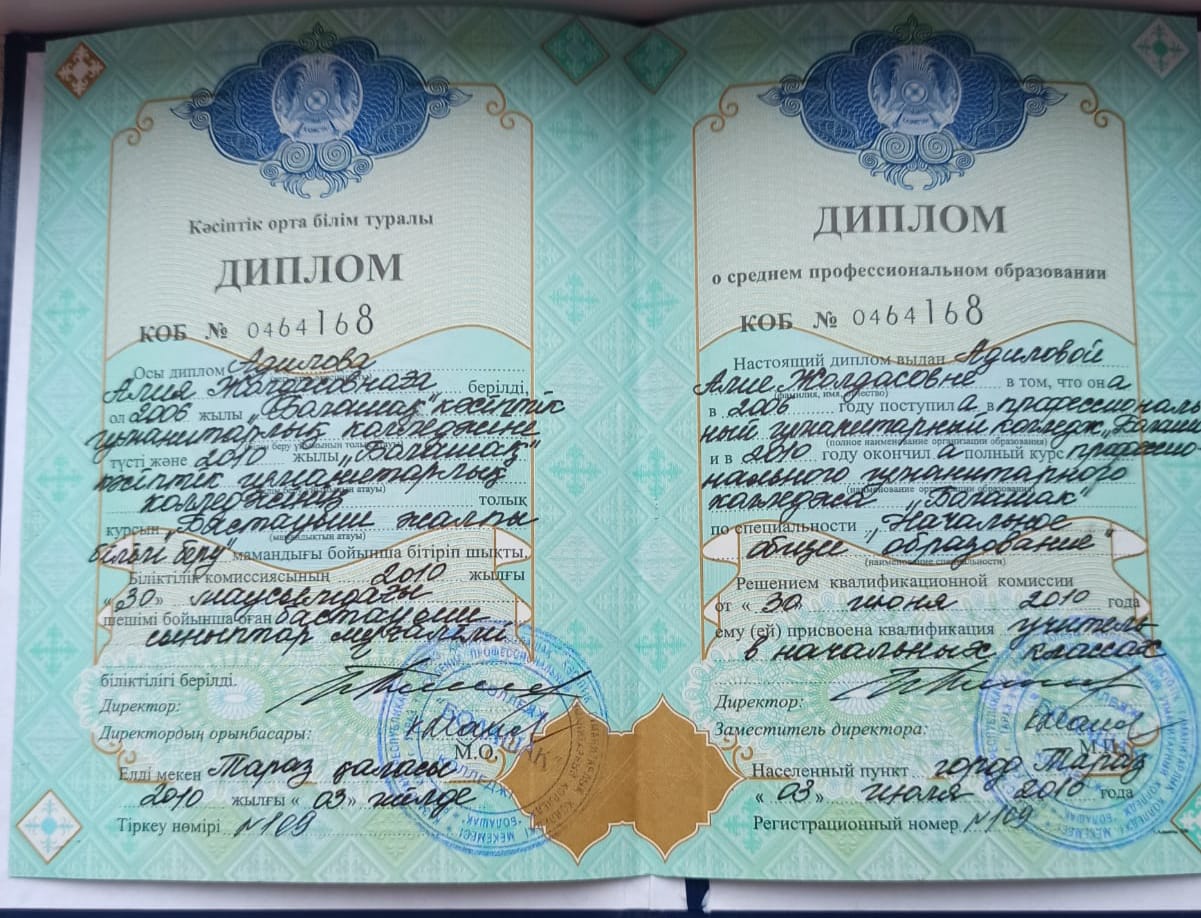 Кәсіптік орта білім туралы
ДИПЛОМ
КОБ № 0464168
Осы диплом Адилова
Алия Жолдасовнаға берілді,
ол 2006 жылы „Болашақ" кәсіптік
гуманитарлық колледжіне
түсті және 2010 жылы „Болашақ"
кәсіптік гуманитарлық
колледжінің толық
курсын „Бастауыш жалпы
(мамандықтың атауы)
білім беру" мамандығы бойынша бітіріп шықты.
Біліктілік комиссиясының 2010 жылғы
«30» маусымдағы
шешімі бойынша оған бастауыш
сыныптар мұғалімі
біліктілігі берілді.
Директор:
Директордың орынбасары:
М.О.
Елді мекен Тараз қаласы
2010 жылғы «03» шілде
Тіркеу нөмірі №109
ДИПЛОМ
о среднем профессиональном образовании
КОБ № 0464168
Настоящий диплом выдан Адиловой
Алие Жолдасовне в том, что она
(фамилия, имя, отчество)
в 2006 году поступила в профессиональ
ный гуманитарный колледж „Болаша
(полное наименование организации образования)
и в 2010 году окончила полный курс професси
нального гуманитарного
(наименование организации образования)
колледжа „Болашак"
по специальности „Начальное
общее образование"
(наименование специальности)
Решением квалификационной комиссии
от «30» июня 2010 года
ему (ей) присвоена квалификация учитель
в начальных классах
Директор:
Заместитель директора:
М.П.
Населенный пункт город Тараз
«03» июля 2010 года
Регистрационный номер №109